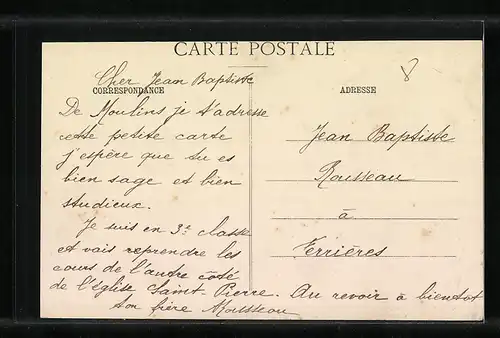 CARTE POSTALE
8
CORRESPONDANCE
ADRESSE
Cher Jean Baptiste
De Moulins je t'adresse
cette petite carte
j'espère que tu es
bien sage et bien
studieux.
Je suis en 3e classe
et vais reprendre les
cours de l'autre côté
de l'église Saint-Pierre. Au revoir à bientot
ton frère
Jean Baptiste
Rousseau
à
Ferrières